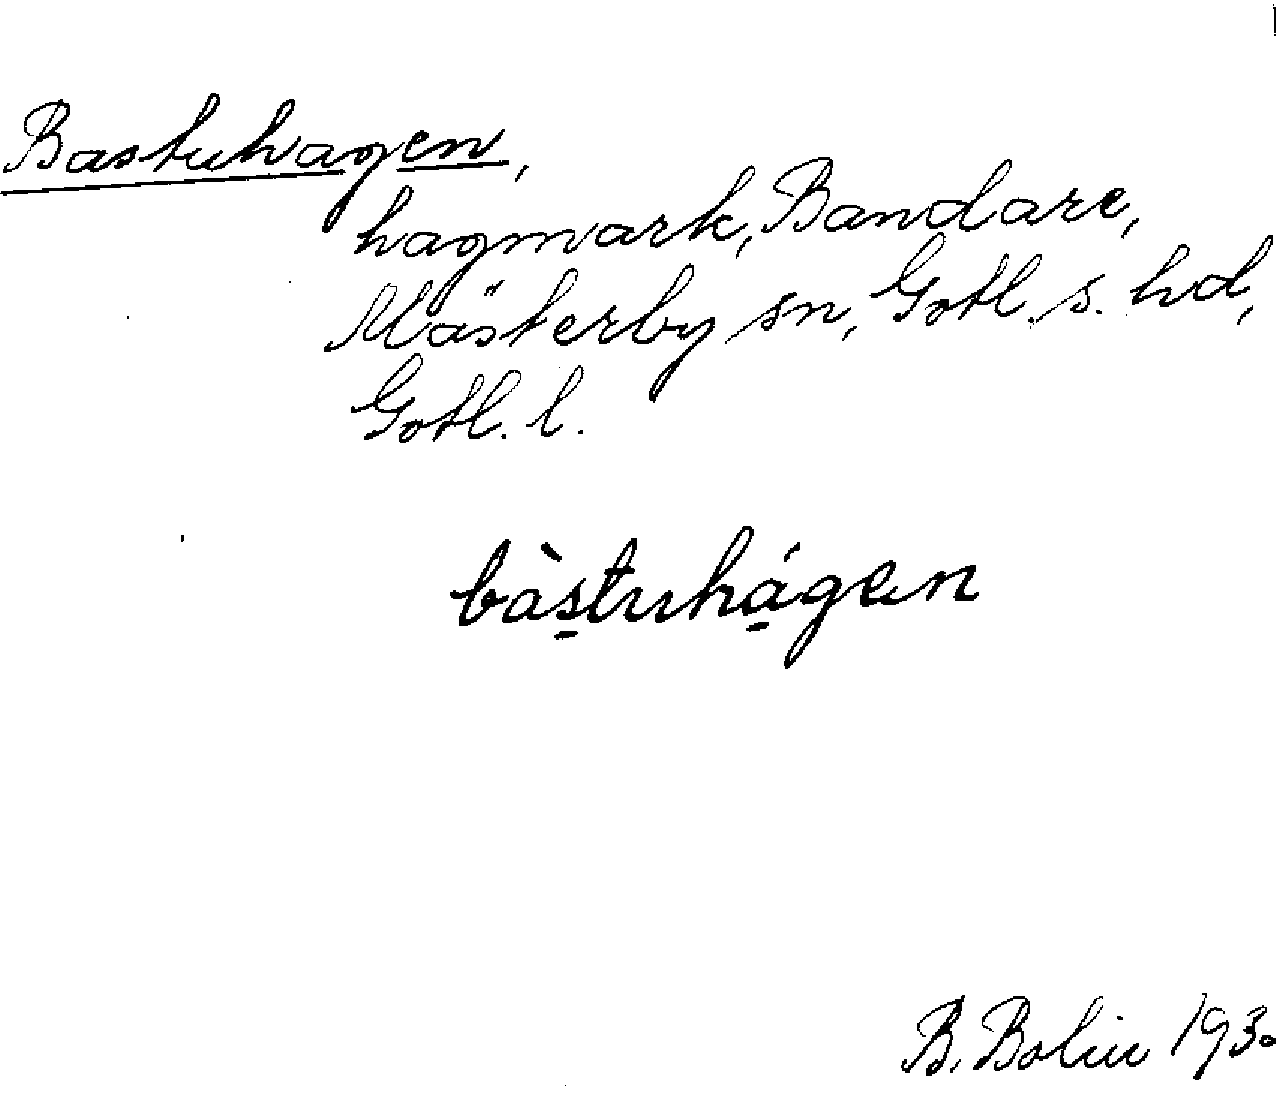 Bastuhagen,
hagmark, Bandare,
Mästerby sn, Gotl. s. hd,
Gotl. l.
bàs̱tuhá̱gen
B. Bolin 1930